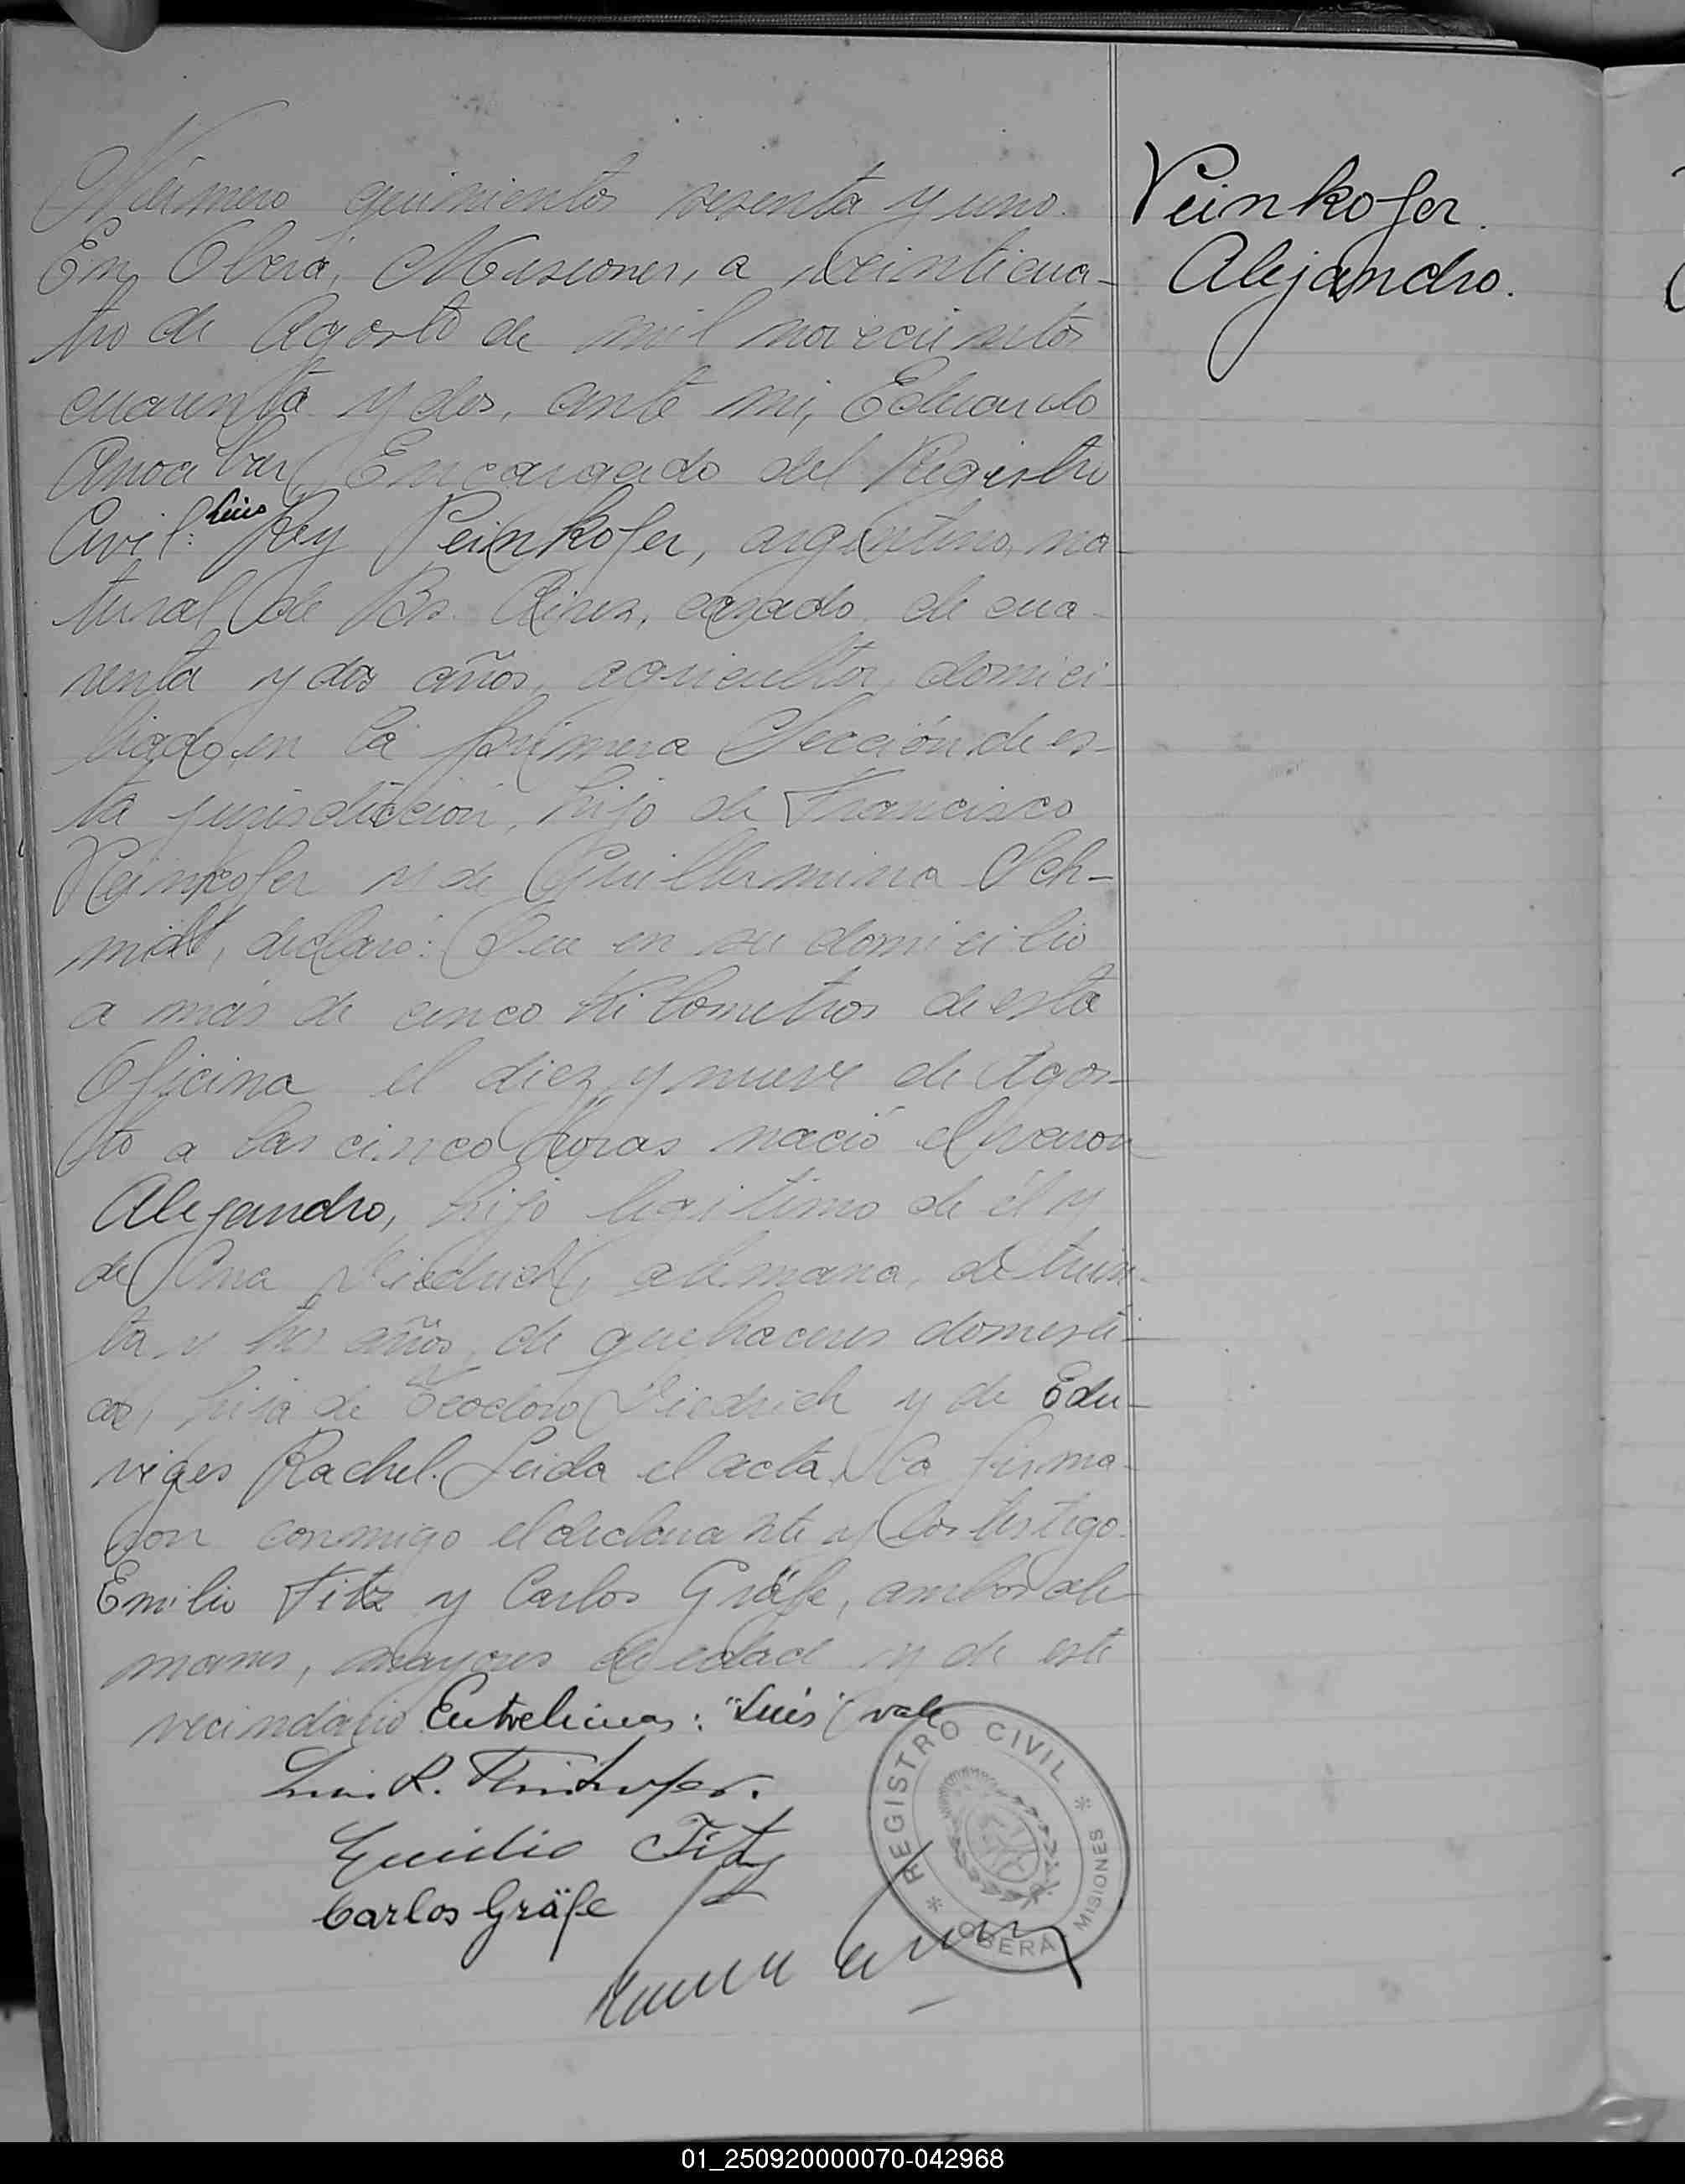 Número quinientos sesenta y uno.
Peinkofer.
En Oberá, Misiones, a veinticua-
Alejandro.
tro de Agosto de mil novecientos
cuarenta y dos, ante mi, Eduardo
Encargado del Registro
Luis
Civil: Rey Peinkofer, argentino, na-
tural de Bs. Aires, casado, de cua-
renta y dos años, agricultor, domici-
liado en la primera Sección de es-
ta jurisdicción, hijo de Francisco
Peinkofer y de Guillermina Sch-
midt, declaró: Que en su domicilio
a más de cinco kilometros de esta
Oficina el diez y nueve de Agos-
to a las cinco horas nació el varon
Alejandro, hijo legitimo de él y
de Ana Diedrich, alemana, de trein-
ta y tres años, de quehaceres domesti-
cos, hija de Teodoro Diedrich y de Edu-
viges Rachel. Leida el acta, la firma-
ron conmigo el declarante y los testigo
Emilio Fitz y Carlos Gräfe, ambos ale
manes, mayores de edad y de este
vecindario Entrelineas: "Luis" vale
Luis R. Peinkofer.
Emilio Fitz
Carlos Gräfe
REGISTRO CIVIL
* OBERÁ MISIONES *
01_250920000070-042968